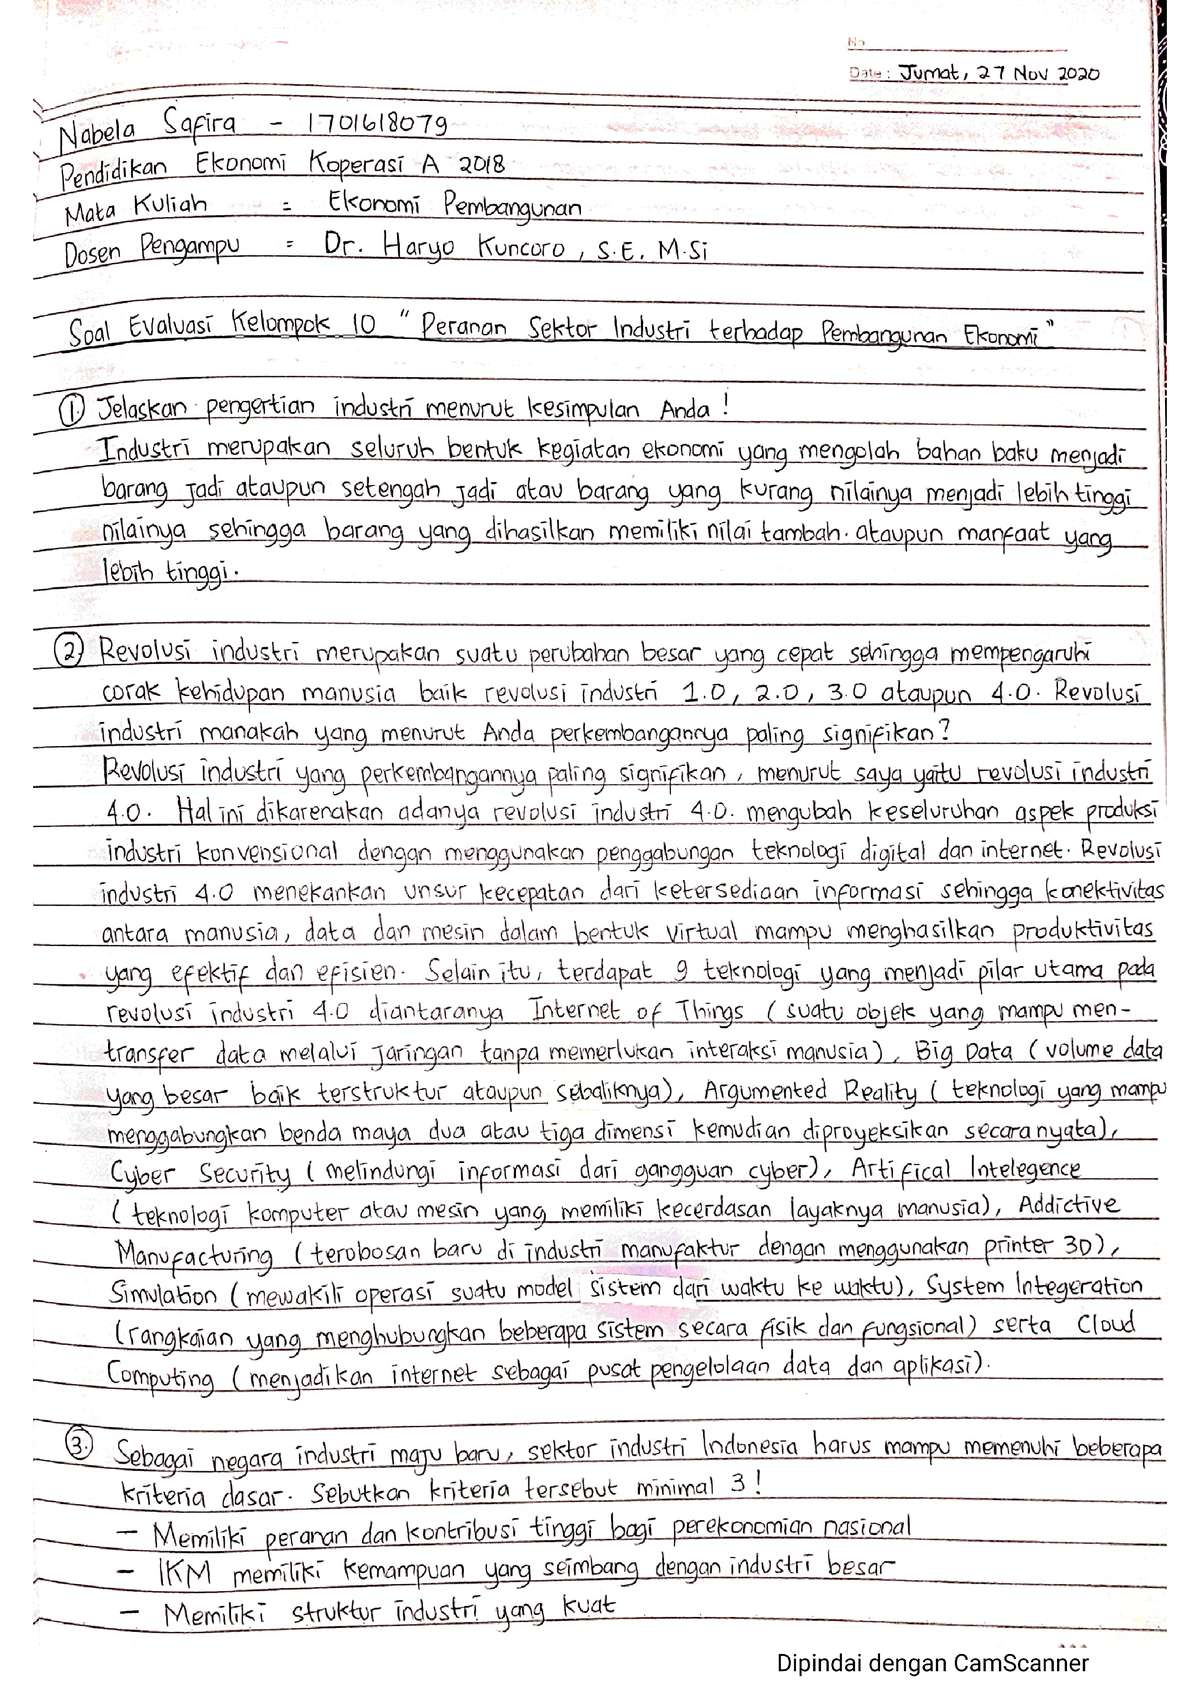 No
Date : Jumat, 27 Nov 2020
Nabela Safira - 1701618079
Pendidikan Ekonomi Koperasi A 2018
Mata Kuliah = Ekonomi Pembangunan
Dosen Pengampu = Dr. Haryo Kuncoro, S.E. M.Si
Soal Evaluasi Kelompok 10 "Peranan Sektor Industri terhadap Pembangunan Ekonomi"
1. Jelaskan pengertian industri menurut kesimpulan Anda!
Industri merupakan seluruh bentuk kegiatan ekonomi yang mengolah bahan baku menjadi
barang jadi ataupun setengah jadi atau barang yang kurang nilainya menjadi lebih tinggi
nilainya sehingga barang yang dihasilkan memiliki nilai tambah. ataupun manfaat yang
lebih tinggi.
2) Revolusi industri merupakan suatu perubahan besar yang cepat sehingga mempengaruhi
corak kehidupan manusia baik revolusi industri 1.0, 2.0, 3.0 ataupun 4.0. Revolusi
industri manakah yang menurut Anda perkembangannya paling signifikan?
Revolusi industri yang perkembangannya paling signifikan, menurut saya yaitu revolusi industri
4.0. Hal ini dikarenakan adanya revolusi industri 4.0. mengubah keseluruhan aspek produksi
industri konvensional dengan menggunakan penggabungan teknologi digital dan internet. Revolusi
industri 4.0 menekankan unsur kecepatan dari ketersediaan informasi sehingga konektivitas
antara manusia, data dan mesin dalam bentuk virtual mampu menghasilkan produktivitas
yang efektif dan efisien. Selain itu, terdapat 9 teknologi yang menjadi pilar utama pada
revolusi industri 4.0 diantaranya Internet of Things (suatu objek yang mampu men-
transfer data melalui jaringan tanpa memerlukan interaksi manusia), Big Data (volume data
yang besar baik terstruktur ataupun sebaliknya), Argumented Reality (teknologi yang mampu
menggabungkan benda maya dua atau tiga dimensi kemudian diproyeksikan secara nyata),
Cyber Security (melindungi informasi dari gangguan cyber), Artifical Intelegence
(teknologi komputer atau mesin yang memiliki kecerdasan layaknya manusia), Addictive
Manufacturing (terobosan baru di industri manufaktur dengan menggunakan printer 3D),
Simulation (mewakili operasi suatu model sistem dari waktu ke waktu), System Integeration
(rangkaian yang menghubungkan beberapa sistem secara fisik dan fungsional) serta Cloud
Computing (menjadikan internet sebagai pusat pengelolaan data dan aplikasi).
3. Sebagai negara industri maju baru, sektor industri Indonesia harus mampu memenuhi beberapa
kriteria dasar. Sebutkan kriteria tersebut minimal 3!
- Memiliki peranan dan kontribusi tinggi bagi perekonomian nasional
- IKM memiliki kemampuan yang seimbang dengan industri besar
- Memiliki struktur industri yang kuat
Dipindai dengan CamScanner